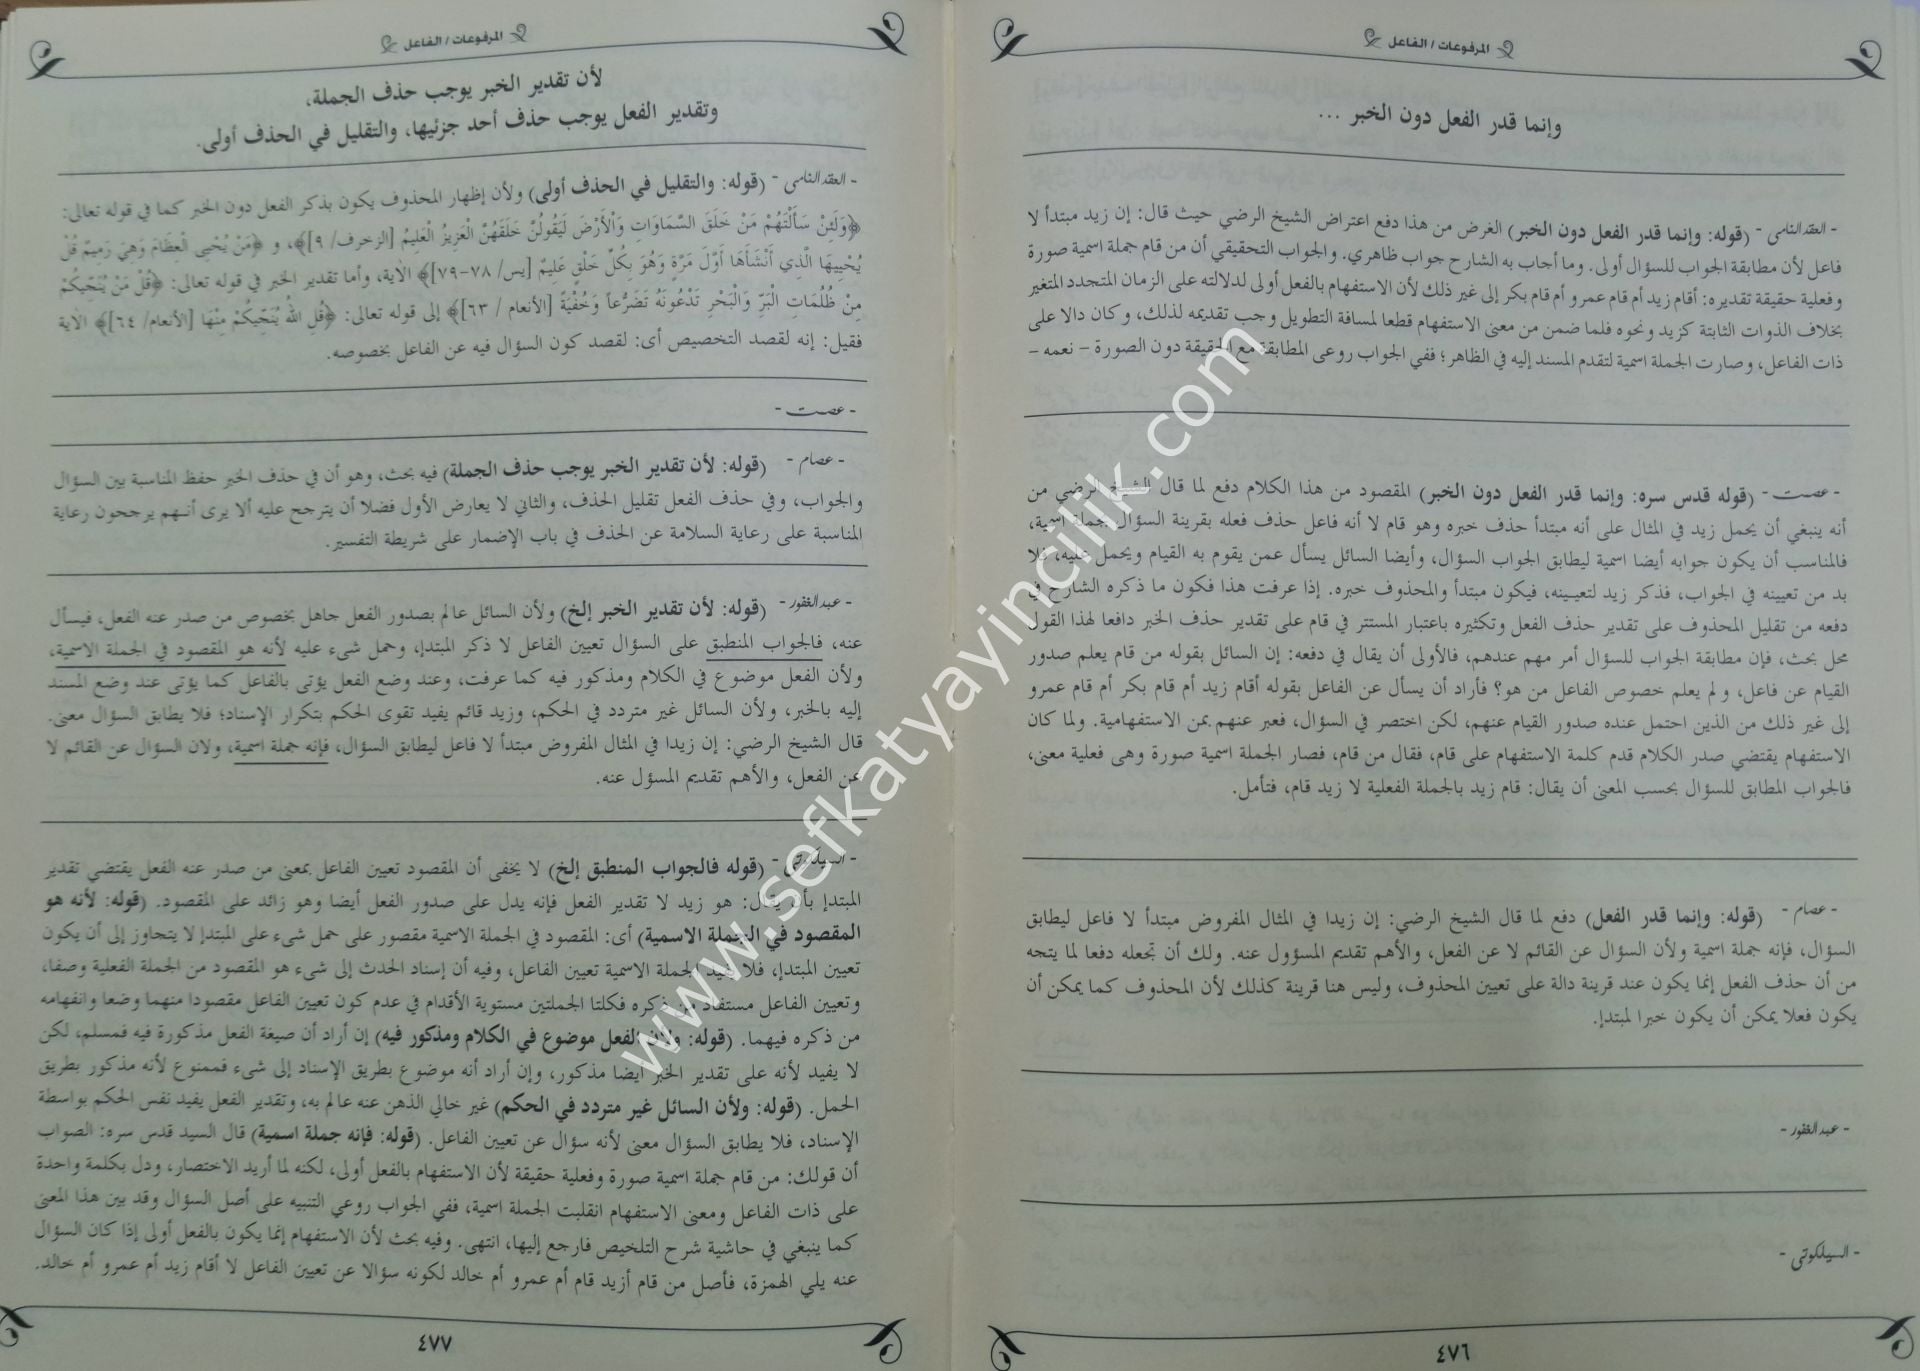 المرفوعات / الفاعل
وإنما قدر الفعل دون الخبر ...
- العقد النامي - (قوله: وإنما قدر الفعل دون الخبر) الغرض من هذا دفع اعتراض الشيخ الرضي حيث قال: إن زيد مبتدأ لا
فاعل لأن مطابقة الجواب للسؤال أولى. وما أجاب به الشارح جواب ظاهري. والجواب التحقيقي أن من قام جملة اسمية صورة
وفعلية حقيقة تقديره: أقام زيد أم قام عمرو أم قام بكر إلى غير ذلك لأن الاستفهام بالفعل أولى لدلالته على الزمان المتجدد المتغير
بخلاف الذوات الثابتة كزيد ونحوه فلما ضمن من معنى الاستفهام قطعا لمسافة التطويل وجب تقديمه لذلك، وكان دالا على
ذات الفاعل، وصارت الجملة اسمية لتقدم المسند إليه في الظاهر؛ ففي الجواب روعى المطابقة مع الحقيقة دون الصورة - نعمه -
- عصمت - (قوله قدس سره: وإنما قدر الفعل دون الخبر) المقصود من هذا الكلام دفع لما قال الشيخ الرضي من
أنه ينبغي أن يحمل زيد في المثال على أنه مبتدأ حذف خبره وهو قام لا أنه فاعل حذف فعله بقرينة السؤال بجملة اسمية،
فالمناسب أن يكون جوابه أيضا اسمية ليطابق الجواب السؤال، وأيضا السائل يسأل عمن يقوم به القيام ويحمل عليه، فلا
بد من تعيينه في الجواب، فذكر زيد لتعيينه، فيكون مبتدأ والمحذوف خبره. إذا عرفت هذا فكون ما ذكره الشارح في
دفعه من تقليل المحذوف على تقدير حذف الفعل وتكثيره باعتبار المستتر في قام على تقدير حذف الخبر دافعا لهذا القول
محل بحث، فإن مطابقة الجواب للسؤال أمر مهم عندهم، فالأولى أن يقال في دفعه: إن السائل بقوله من قام يعلم صدور
القيام عن فاعل، ولم يعلم خصوص الفاعل من هو؟ فأراد أن يسأل عن الفاعل بقوله أقام زيد أم قام بكر أم قام عمرو
إلى غير ذلك من الذين احتمل عنده صدور القيام عنهم، لكن اختصر في السؤال، فعبر عنهم بمن الاستفهامية. ولما كان
الاستفهام يقتضي صدر الكلام قدم كلمة الاستفهام على قام، فقال من قام، فصار الجملة اسمية صورة وهى فعلية معنى،
فالجواب المطابق للسؤال بحسب المعنى أن يقال: قام زيد بالجملة الفعلية لا زيد قام، فتأمل.
- عصام - (قوله: وإنما قدر الفعل) دفع لما قال الشيخ الرضي: إن زيدا في المثال المفروض مبتدأ لا فاعل ليطابق
السؤال، فإنه جملة اسمية ولأن السؤال عن القائم لا عن الفعل، والأهم تقديم المسؤول عنه. ولك أن تجعله دفعا لما يتجه
من أن حذف الفعل إنما يكون عند قرينة دالة على تعيين المحذوف، وليس هنا قرينة كذلك لأن المحذوف كما يمكن أن
يكون فعلا يمكن أن يكون خبرا لمبتدإ.
- عبد الغفور -
- السيلكوتي -
٤٧٦
المرفوعات / الفاعل
لأن تقدير الخبر يوجب حذف الجملة،
وتقدير الفعل يوجب حذف أحد جزئيها، والتقليل في الحذف أولى.
- العقد النامي - (قوله: والتقليل في الحذف أولى) ولأن إظهار المحذوف يكون بذكر الفعل دون الخبر كما في قوله تعالى:
﴿وَلَئِنْ سَأَلْتَهُمْ مَنْ خَلَقَ السَّمَاوَاتِ وَالْأَرْضَ لَيَقُولُنَّ خَلَقَهُنَّ الْعَزِيزُ الْعَلِيمُ [الزخرف/ ٩]﴾، و ﴿مَنْ يُحْيِى الْعِظَامَ وَهِيَ رَمِيمٌ قُلْ
يُحْيِيهَا الَّذِي أَنْشَأَهَا أَوَّلَ مَرَّةٍ وَهُوَ بِكُلِّ خَلْقٍ عَلِيمٌ [يس/ ٧٨-٧٩]﴾ الآية، وأما تقدير الخبر في قوله تعالى: ﴿قُلْ مَنْ يُنَجِّيكُمْ
مِنْ ظُلُمَاتِ الْبَرِّ وَالْبَحْرِ تَدْعُونَهُ تَضَرُّعاً وَخُفْيَةً [الأنعام / ٦٣]﴾ إلى قوله تعالى: ﴿قُلِ اللهُ يُنَجِّيكُمْ مِنْهَا [الأنعام/ ٦٤]﴾ الآية
فقيل: إنه لقصد التخصيص أى: لقصد كون السؤال فيه عن الفاعل بخصوصه.
- عصمت -
- عصام - (قوله: لأن تقدير الخبر يوجب حذف الجملة) فيه بحث، وهو أن في حذف الخبر حفظ المناسبة بين السؤال
والجواب، وفي حذف الفعل تقليل الحذف، والثاني لا يعارض الأول فضلا أن يترجح عليه ألا يرى أنهم يرجحون رعاية
المناسبة على رعاية السلامة عن الحذف في باب الإضمار على شريطة التفسير.
- عبد الغفور - (قوله: لأن تقدير الخبر إلخ) ولأن السائل عالم بصدور الفعل جاهل بخصوص من صدر عنه الفعل، فيسأل
عنه، فالجواب المنطبق على السؤال تعيين الفاعل لا ذكر المبتدإ، وحمل شىء عليه لأنه هو المقصود في الجملة الاسمية،
ولأن الفعل موضوع في الكلام ومذكور فيه كما عرفت، وعند وضع الفعل يؤتى بالفاعل كما يؤتى عند وضع المسند
إليه بالخبر، ولأن السائل غير متردد في الحكم، وزيد قائم يفيد تقوى الحكم بتكرار الإسناد؛ فلا يطابق السؤال معنى.
قال الشيخ الرضي: إن زيدا في المثال المفروض مبتدأ لا فاعل ليطابق السؤال، فإنه جملة اسمية، ولان السؤال عن القائم لا
عن الفعل، والأهم تقديم المسؤل عنه.
- السيلكوتي - (قوله فالجواب المنطبق إلخ) لا يخفى أن المقصود تعيين الفاعل بمعنى من صدر عنه الفعل يقتضي تقدير
المبتدإ بأن يقال: هو زيد لا تقدير الفعل فإنه يدل على صدور الفعل أيضا وهو زائد على المقصود. (قوله: لأنه هو
المقصود في الجملة الاسمية) أى: المقصود في الجملة الاسمية مقصور على حمل شىء على المبتدإ لا يتجاوز إلى أن يكون
تعيين المبتدإ، فلا يفيد الجملة الاسمية تعيين الفاعل، وفيه أن إسناد الحدث إلى شىء هو المقصود من الجملة الفعلية وصفا،
وتعيين الفاعل مستفاد من ذكره فكلتا الجملتين مستوية الأقدام في عدم كون تعيين الفاعل مقصودا منهما وضعا وانفهامه
من ذكره فيهما. (قوله: ولأن الفعل موضوع في الكلام ومذكور فيه) إن أراد أن صيغة الفعل مذكورة فيه فمسلم، لكن
لا يفيد لأنه على تقدير الخبر أيضا مذكور، وإن أراد أنه موضوع بطريق الإسناد إلى شىء فممنوع لأنه مذكور بطريق
الحمل. (قوله: ولأن السائل غير متردد في الحكم) غير خالي الذهن عنه عالم به، وتقدير الفعل يفيد نفس الحكم بواسطة
الإسناد، فلا يطابق السؤال معنى لأنه سؤال عن تعيين الفاعل. (قوله: فإنه جملة اسمية) قال السيد قدس سره: الصواب
أن قولك: من قام جملة اسمية صورة وفعلية حقيقة لأن الاستفهام بالفعل أولى، لكنه لما أريد الاختصار، ودل بكلمة واحدة
على ذات الفاعل ومعنى الاستفهام انقلبت الجملة اسمية، ففي الجواب روعي التنبيه على أصل السؤال وقد بين هذا المعنى
كما ينبغي في حاشية شرح التلخيص فارجع إليها، انتهى. وفيه بحث لأن الاستفهام إنما يكون بالفعل أولى إذا كان السؤال
عنه يلي الهمزة، فأصل من قام أزيد قام أم عمرو أم خالد لكونه سؤالا عن تعيين الفاعل لا أقام زيد أم عمرو أم خالد.
٤٧٧
www.sefkatyayincilik.com